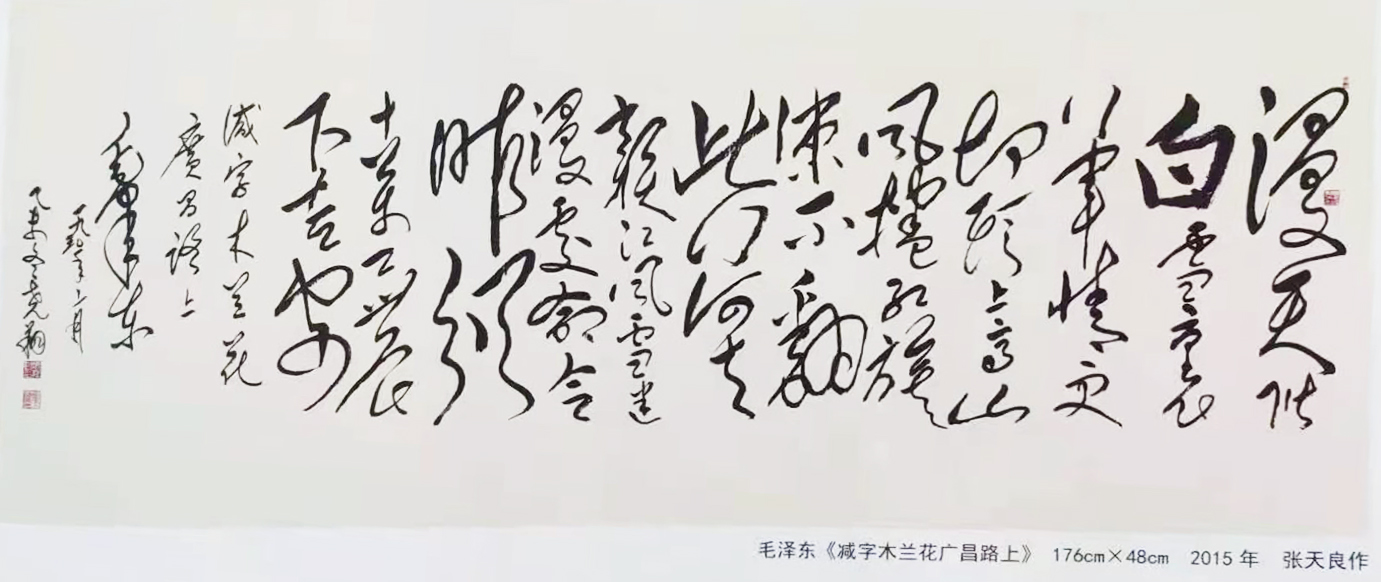 漫天皆
白雪裏
行军情更
迫头上高山
风捲红旗
凍不翻
此行何去
赣江风雪迷
漫处命令
昨颁
十万工农
下吉安
减字木兰花
廣昌路上
毛泽东
乙未
毛泽东《减字木兰花广昌路上》 176cm×48cm 2015年 张天良作